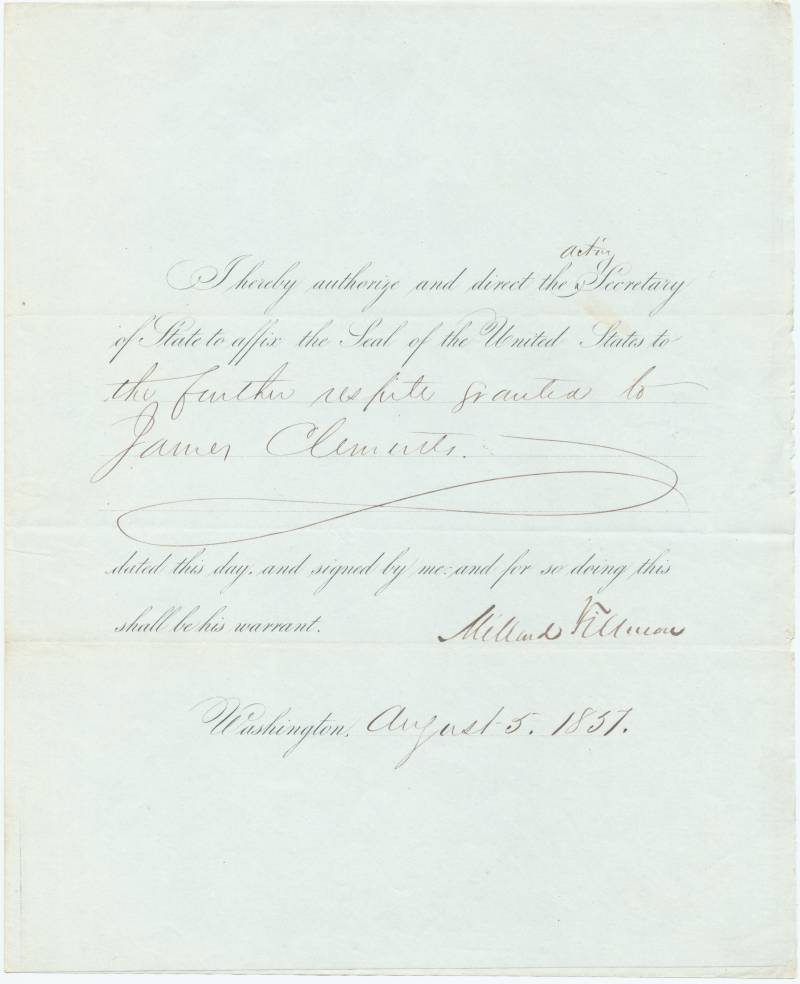 acting
I hereby authorize and direct the ‸ Secretary
of State to affix the Seal of the United States to
the further respite granted to
James Clements.
dated this day, and signed by me: and for so doing this
shall be his warrant.
Millard Fillmore
Washington, August 5. 1851.